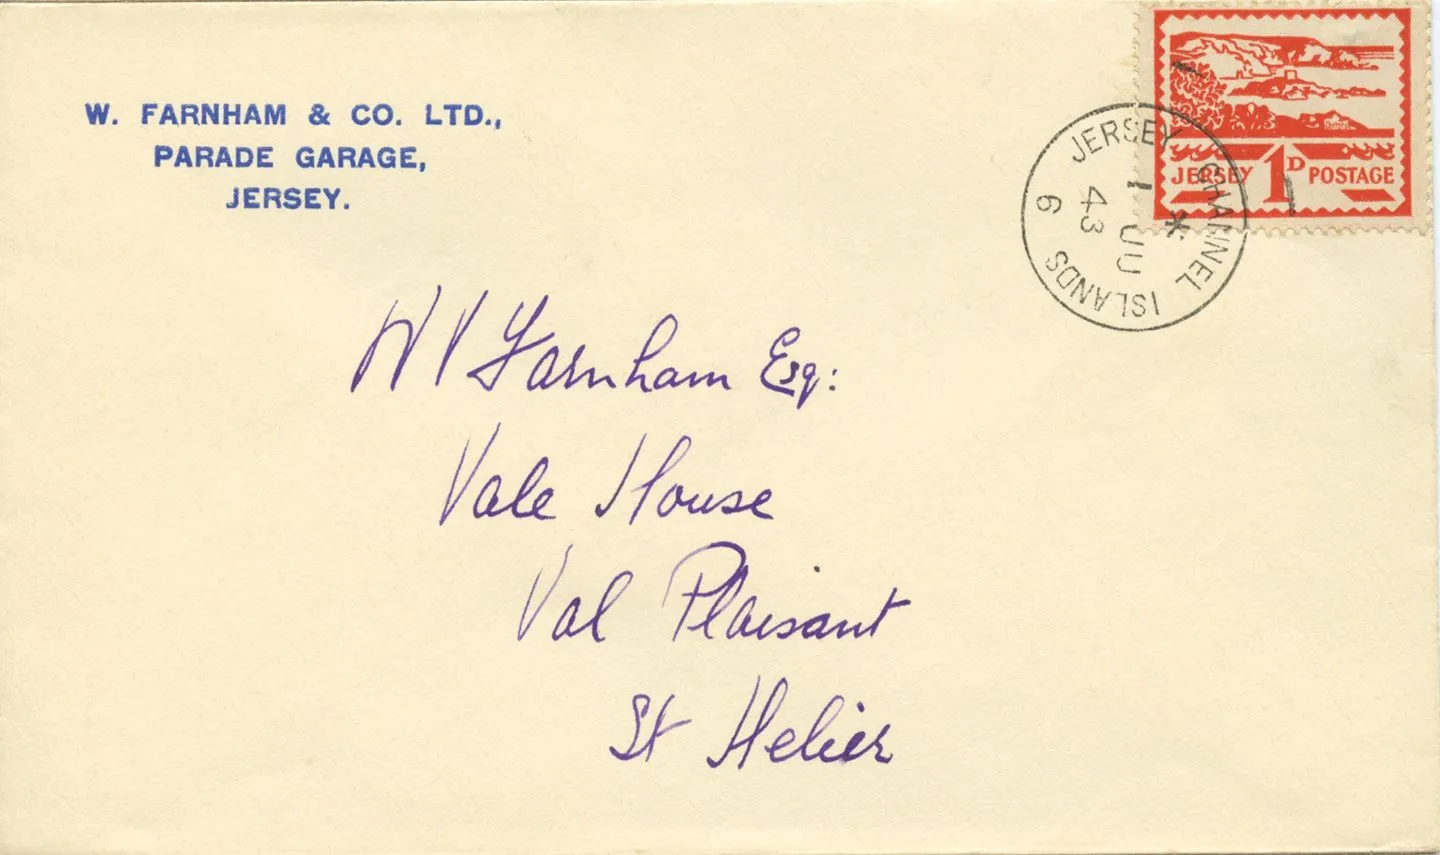 W. FARNHAM & CO. LTD.,
PARADE GARAGE,
JERSEY.
JERSEY 1D POSTAGE
JERSEY CHANNEL ISLANDS
1 JU
43
6
W V Farnham Esq:
Vale House
Val Plaisant
St Helier